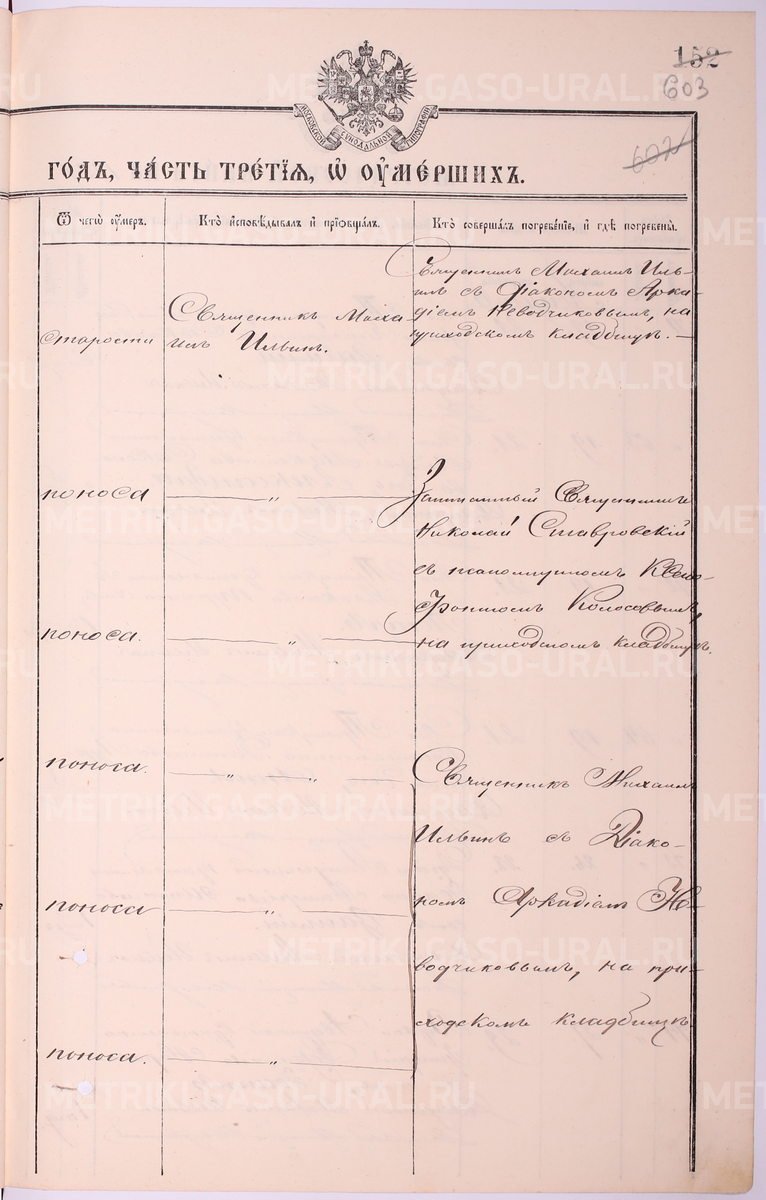 152
603
602
МОСКОВСКОЙ СѴНОДАЛЬНОЙ ТИПОГРАФІИ
ГО́ДЪ, ЧА́СТЬ ТРЕ́ТІѦ, Ѡ҆ ОУ҆МЕ́РШИХЪ.
Ѿ чегѡ̀ оу҆́меръ.
Кто̀ и҆сповѣ́дывалъ и҆ прїѡбща́лъ.
Кто̀ соверша́лъ погребе́нїе, и҆ гдѣ̀ погребены̀.
Старости
Священникъ Миха-
илъ Ильинъ.
Священникъ Михаилъ Иль-
инъ съ Діакономъ Арка-
діемъ Неводчиковымъ, на
приходскомъ кладбищѣ. —
поноса
— „ —
Заштатный Священникъ
Николай Ставровскій
съ псаломщикомъ Ксено-
фонтомъ Колосовымъ,
на приходскомъ кладбищѣ.
поноса.
— „ —
поноса.
— „ — „ —
Священникъ Михаилъ
Ильинъ съ Діако-
номъ Аркадіемъ Не-
водчиковымъ, на при-
ходскомъ кладбищѣ.
поноса
— „ —
поноса.
— „ —
METRIKI.GASO-URAL.RU